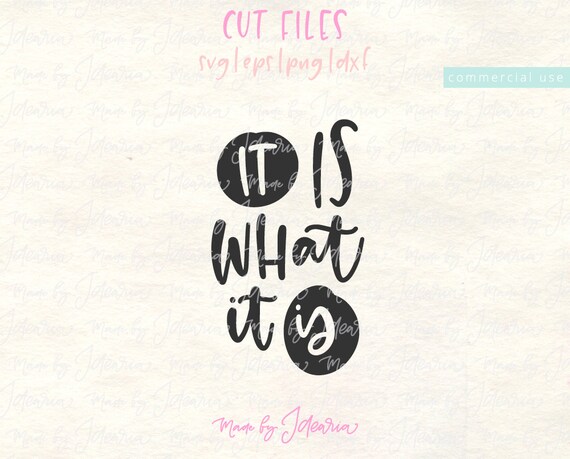 CUT FILES
svg|eps|png|dxf
commercial use
IT IS
WHat
it is
Made by Idearia